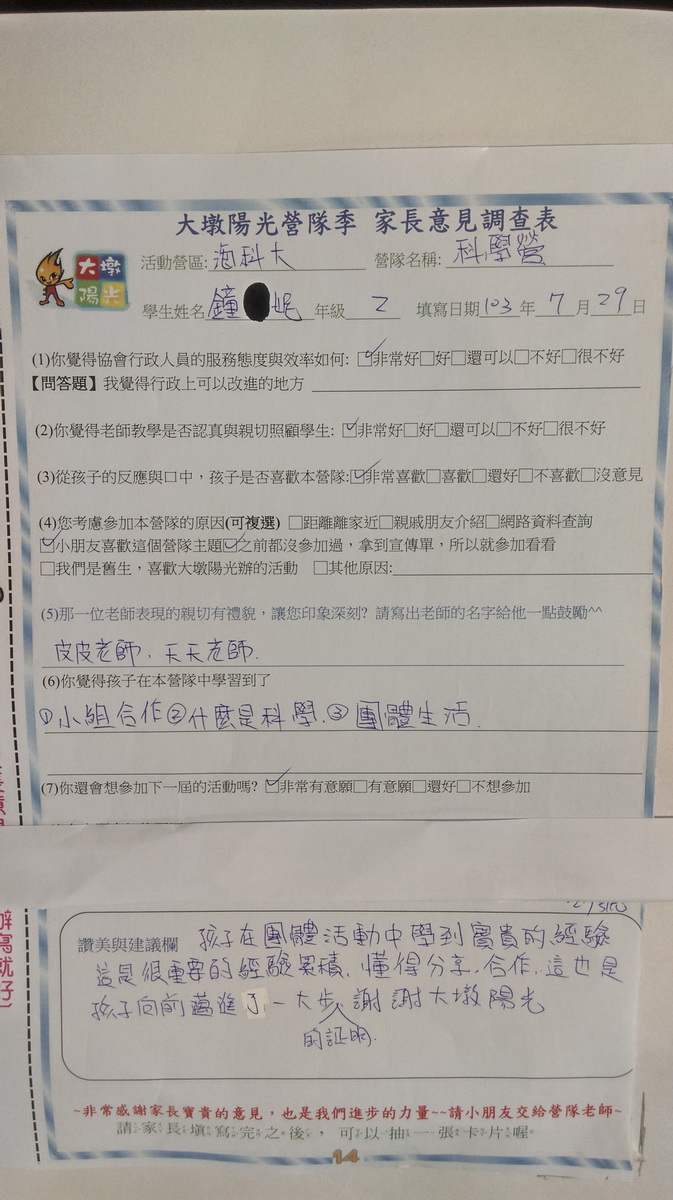 大墩陽光營隊季 家長意見調查表
大墩
陽光
活動營區:海科大 營隊名稱: 科學營
學生姓名 鐘 妮 年級 2 填寫日期103 年 7 月 29 日
(1)你覺得協會行政人員的服務態度與效率如何: ☑非常好□好□還可以□不好□很不好
【問答題】我覺得行政上可以改進的地方
(2)你覺得老師教學是否認真與親切照顧學生: ☑非常好□好□還可以□不好□很不好
(3)從孩子的反應與口中，孩子是否喜歡本營隊:☑非常喜歡□喜歡□還好□不喜歡□沒意見
(4)您考慮參加本營隊的原因(可複選) □距離離家近□親戚朋友介紹□網路資料查詢
☑小朋友喜歡這個營隊主題☑之前都沒參加過，拿到宣傳單，所以就參加看看
□我們是舊生，喜歡大墩陽光辦的活動 □其他原因:
(5)那一位老師表現的親切有禮貌，讓您印象深刻? 請寫出老師的名字給他一點鼓勵^^
皮皮老師、天天老師.
(6)你覺得孩子在本營隊中學習到了
①小組合作②什麼是科學.③團體生活.
(7)你還會想參加下一屆的活動嗎? ☑非常有意願□有意願□還好□不想參加
讚美與建議欄 孩子在團體活動中學到寶貴的經驗
這是很重要的經驗累積,懂得分享.合作.這也是
孩子向前邁進了一大步 謝謝大墩陽光
的証明.
~非常感謝家長寶貴的意見，也是我們進步的力量~~請小朋友交給營隊老師~
請家長填寫完之後，可以抽一張卡片喔
14
辦寫就好)